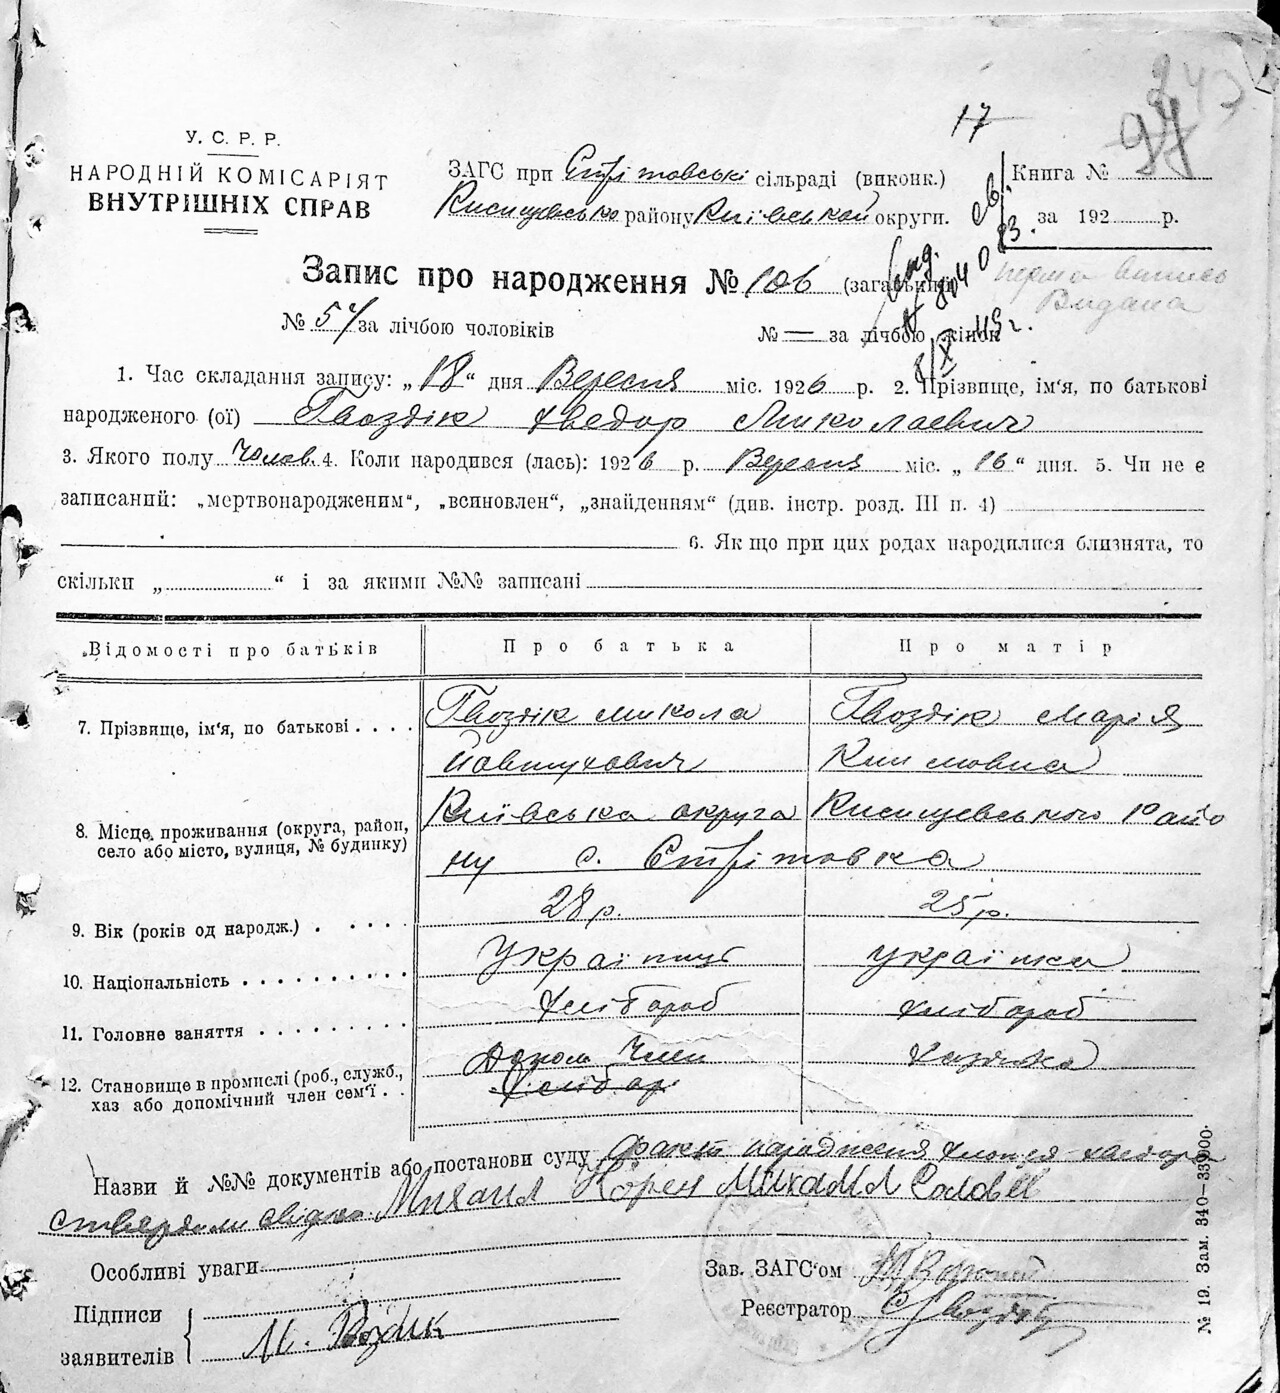 17
243
У. С. Р. Р.
НАРОДНІЙ КОМІСАРІЯТ
ВНУТРІШНІХ СПРАВ
ЗАГС при Стрітовські сільраді (виконк.)
Кисищевсько району Київськой округи.
Книга №
за 192 р.
перша випись
Видана
Запис про народження № 106 (загальний)
№ 57 за лічбою чоловіків
№ — за лічбою жінок
8/X 45 г.
1. Час складання запису: „18“ дня Вересня міс. 1926 р. 2. Прізвище, ім'я, по батькові
народженого (ої) Гвоздік Хведор Миколаевич
3. Якого полу Чолов. 4. Коли народився (лась): 1926 р. Вересня міс. „16“ дня. 5. Чи не є
записаний: „мертвонародженим“, „всиновлен“, „знайденням“ (див. інстр. розд. III п. 4)
6. Якщо при цих родах народилися близнята, то
скільки „ “ і за якими №№ записані
Відомості про батьків Про батька Про матір
7. Прізвище, ім'я, по батькові Гвоздік Микола Гвоздік Марія
Климовна
8. Місце проживання (округа, район, Київська округа Кисищевського райо
село або місто, вулиця, № будинку) ну с. Стрітовка
9. Вік (років од народж.) 28 р. 25 р.
10. Національність Українць українка
11. Головне заняття хлібороб хлібороб
12. Становище в промислі (роб., служб., Допом. Член хазяйка
хаз або допомічний член сем'ї хлібор.
Назви й №№ документів або постанови суду факт народження хлопця Хведора
ствердили свідки Михаил Корен Михаил Соловей
Особливі уваги
Зав. ЗАГС'ом
Підписи
заявителів
Реєстратор
№ 19. Зам. 340—33900.